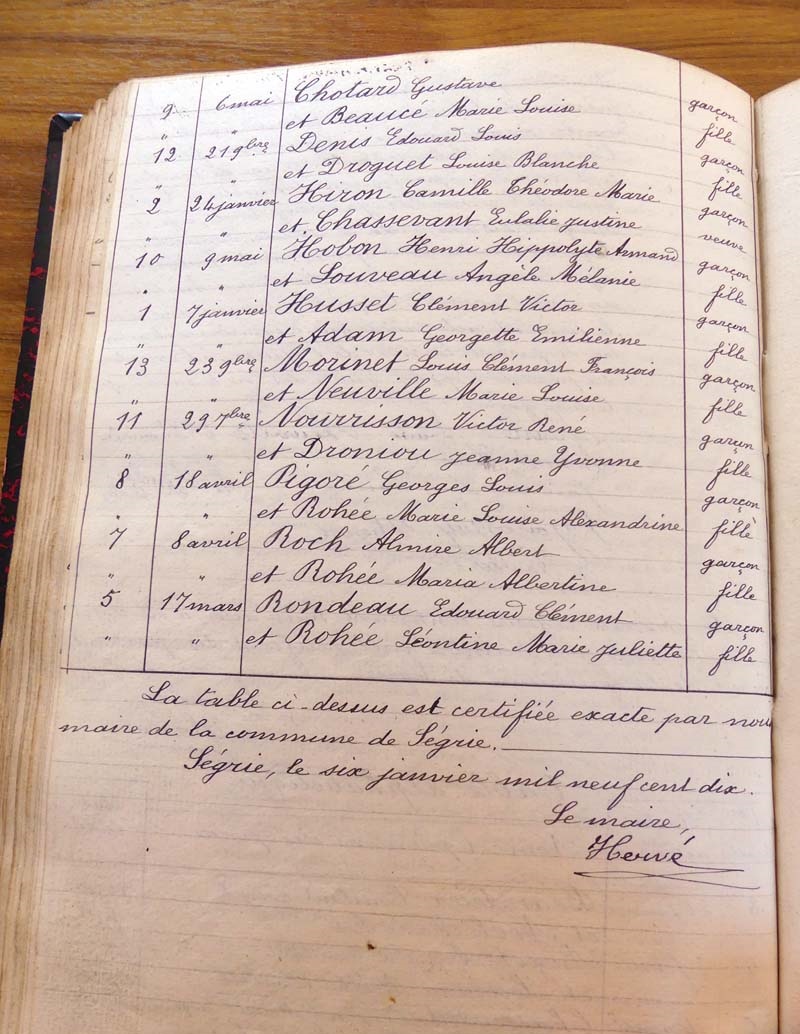 9 6 mai Chotard Gustave garçon
" " et Beaucé Marie Louise fille
12 21 9bre Denis Edouard Louis garçon
" " et Droguet Louise Blanche fille
2 24 janvier Hiron Camille Théodore Marie garçon
" " et Chassevant Eulalie Justine veuve
10 9 mai Hobon Henri Hippolyte Armand garçon
" " et Louveau Angèle Mélanie fille
1 7 janvier Husset Clément Victor garçon
" " et Adam Georgette Emilienne fille
13 23 9bre Morinet Louis Clément François garçon
" " et Neuville Marie Louise fille
11 29 7bre Nourrisson Victor René garçon
" " et Droniou Jeanne Yvonne fille
8 18 avril Pigoré Georges Louis garçon
" " et Rohée Marie Louise Alexandrine fille
7 8 avril Roch Almire Albert garçon
" " et Rohée Maria Albertine fille
5 17 mars Rondeau Edouard Clément garçon
" " et Rohée Léontine Marie Juliette fille
La table ci-dessus est certifiée exacte par nous
maire de la commune de Ségrie.
Ségrie, le six janvier mil neuf cent dix.
Le maire,
Hervé